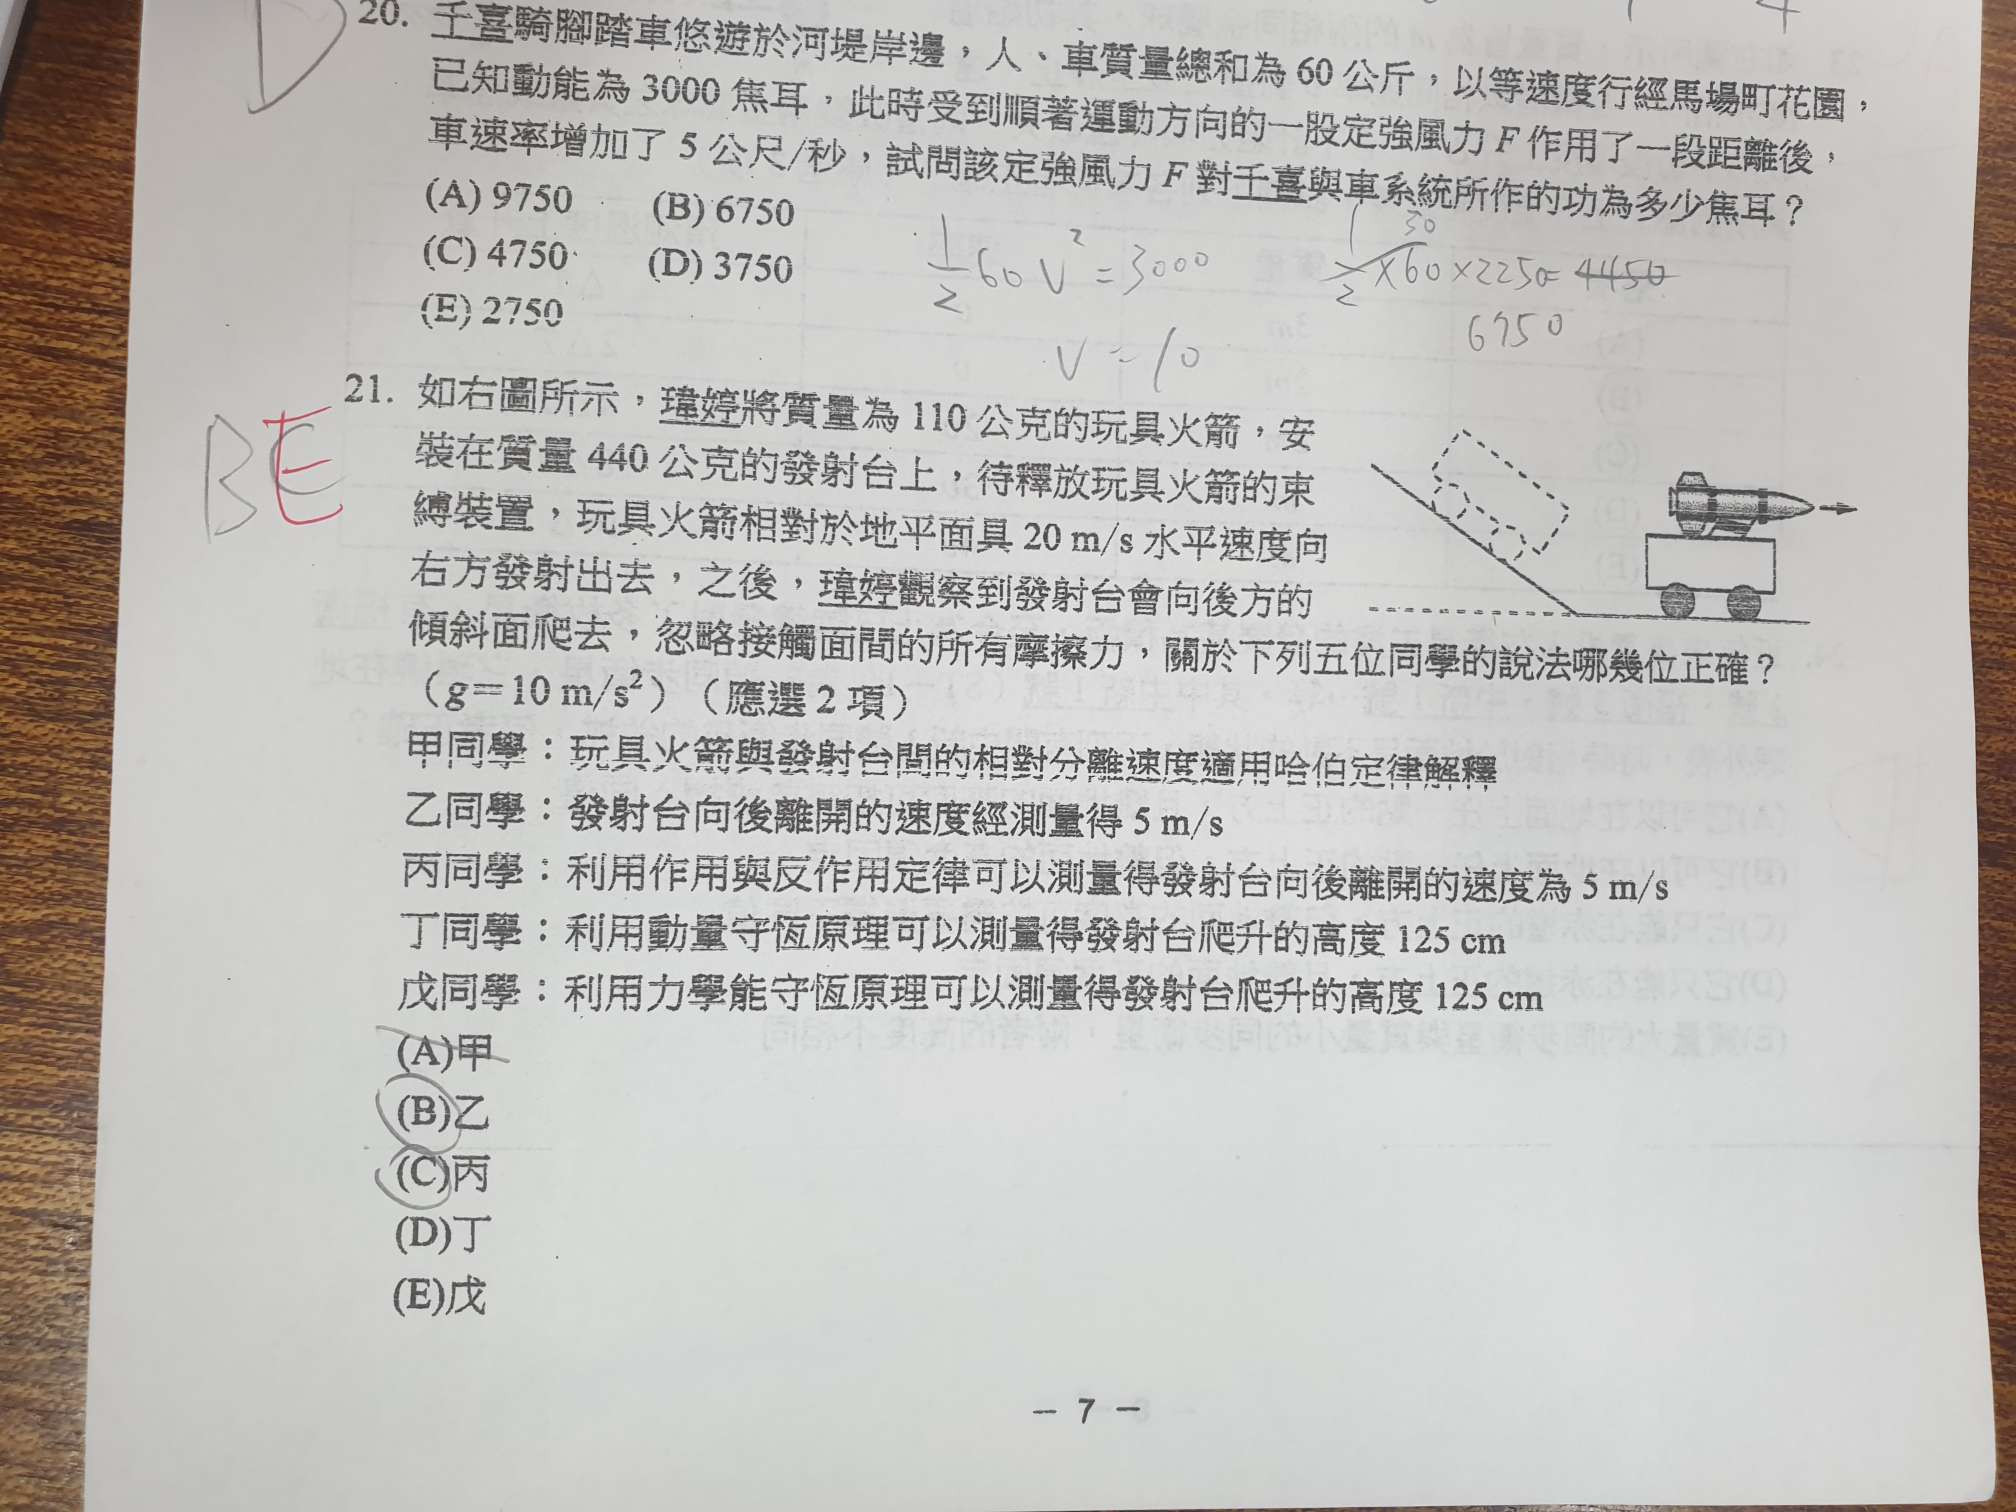 D
20. 千喜騎腳踏車悠遊於河堤岸邊，人、車質量總和為 60 公斤，以等速度行經馬場町花園，
已知動能為 3000 焦耳，此時受到順著運動方向的一股定強風力 F 作用了一段距離後，
車速率增加了 5 公尺/秒，試問該定強風力 F 對千喜與車系統所作的功為多少焦耳？
(A) 9750 (B) 6750
(C) 4750 (D) 3750
(E) 2750
1/2 60 V² = 3000
V = 10
1/2 × 60 × 2250 = 4450
30
6750
BE
21. 如右圖所示，瑋婷將質量為 110 公克的玩具火箭，安
裝在質量 440 公克的發射台上，待釋放玩具火箭的束
縛裝置，玩具火箭相對於地平面具 20 m/s 水平速度向
右方發射出去，之後，瑋婷觀察到發射台會向後方的
傾斜面爬去，忽略接觸面間的所有摩擦力，關於下列五位同學的說法哪幾位正確？
（g＝10 m/s²）（應選 2 項）
甲同學：玩具火箭與發射台間的相對分離速度適用哈伯定律解釋
乙同學：發射台向後離開的速度經測量得 5 m/s
丙同學：利用作用與反作用定律可以測量得發射台向後離開的速度為 5 m/s
丁同學：利用動量守恆原理可以測量得發射台爬升的高度 125 cm
戊同學：利用力學能守恆原理可以測量得發射台爬升的高度 125 cm
(A)甲
(B)乙
(C)丙
(D)丁
(E)戊
－ 7 －